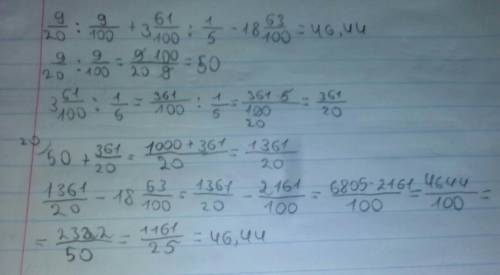 9/20 : 9/100 + 3 61/100 : 1/5 - 18 63/100 = 46,44
9/20 : 9/100 = 9·100/20 9 = 50
3 61/100 : 1/5 = 361/100 : 1/5 = 361·5/100 20 = 361/20
20/ 50 + 361/20 = 1000+361/20 = 1361/20
1361/20 - 18 63/100 = 1361/20 - 2161/100 = 6805-2161/100 = 4644/100 =
= 2322/50 = 1161/25 = 46,44